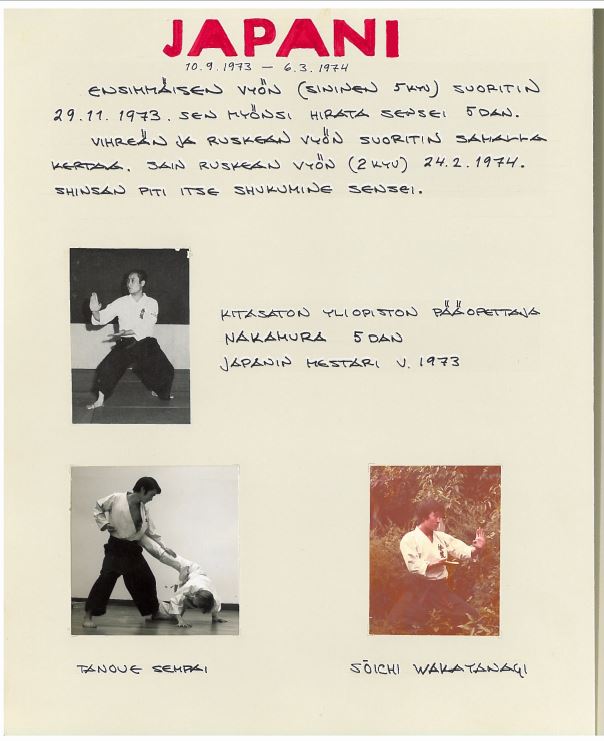 JAPANI
10.9.1973 — 6.3.1974
ENSIMMÄISEN VYÖN (SININEN 5 KYU) SUORITIN
29.11.1973. SEN MYÖNSI HIRATA SENSEI 5 DAN.
VIHREÄN JA RUSKEAN VYÖN SUORITIN SAMALLA
KERTAA. SAIN RUSKEAN VYÖN (2 KYU) 24.2.1974.
SHINSAN PITI ITSE SHUKUMINE SENSEI.
KITASATON YLIOPISTON PÄÄOPETTAJA
NAKAMURA 5 DAN
JAPANIN MESTARI V. 1973
TANOUE SEMPAI
SŌICHI WAKAYANAGI